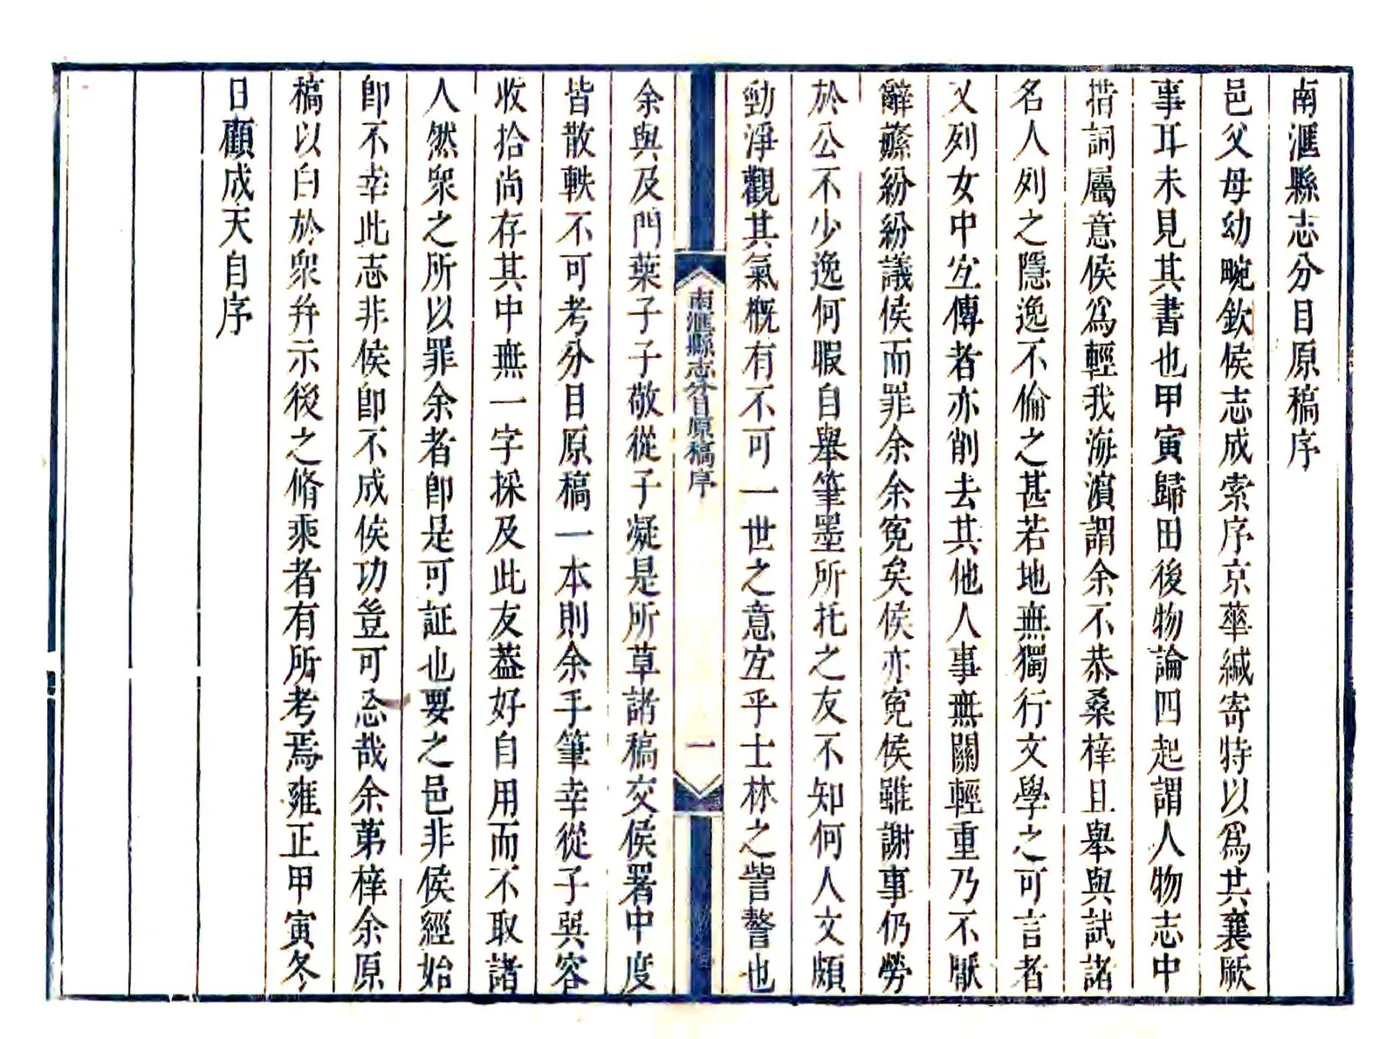 南滙縣志分目原稿序
邑父母幼畹欽侯志成索序京華緘寄特以爲共襄厥
事耳未見其書也甲寅歸田後物論四起謂人物志中
措詞屬意侯爲輕我海濵謂余不恭桑梓且舉與試諸
名人列之隱逸不倫之甚若地無獨行文學之可言者
又列女中宐傳者亦削去其他人事無關輕重乃不厭
辭蘇紛紛議侯而罪余余寃矣侯亦寃侯雖謝事仍勞
於公不少逸何暇自舉筆墨所托之友不知何人文頗
勁淨觀其氣概有不可一世之意宐乎士林之訾謷也
南滙縣志分目原稿序
一
余與及門葉子子敬從子凝是所草諸稿交侯署中度
皆散軼不可考分目原稿一本則余手筆幸從子與容
收拾尚存其中無一字採及此友葢好自用而不取諸
人然眾之所以罪余者卽是可証也要之邑非侯經始
卽不幸此志非侯卽不成侯功豈可忘哉余苐梓余原
稿以白於眾幷示後之脩乘者有所考焉雍正甲寅冬
日顧成天自序